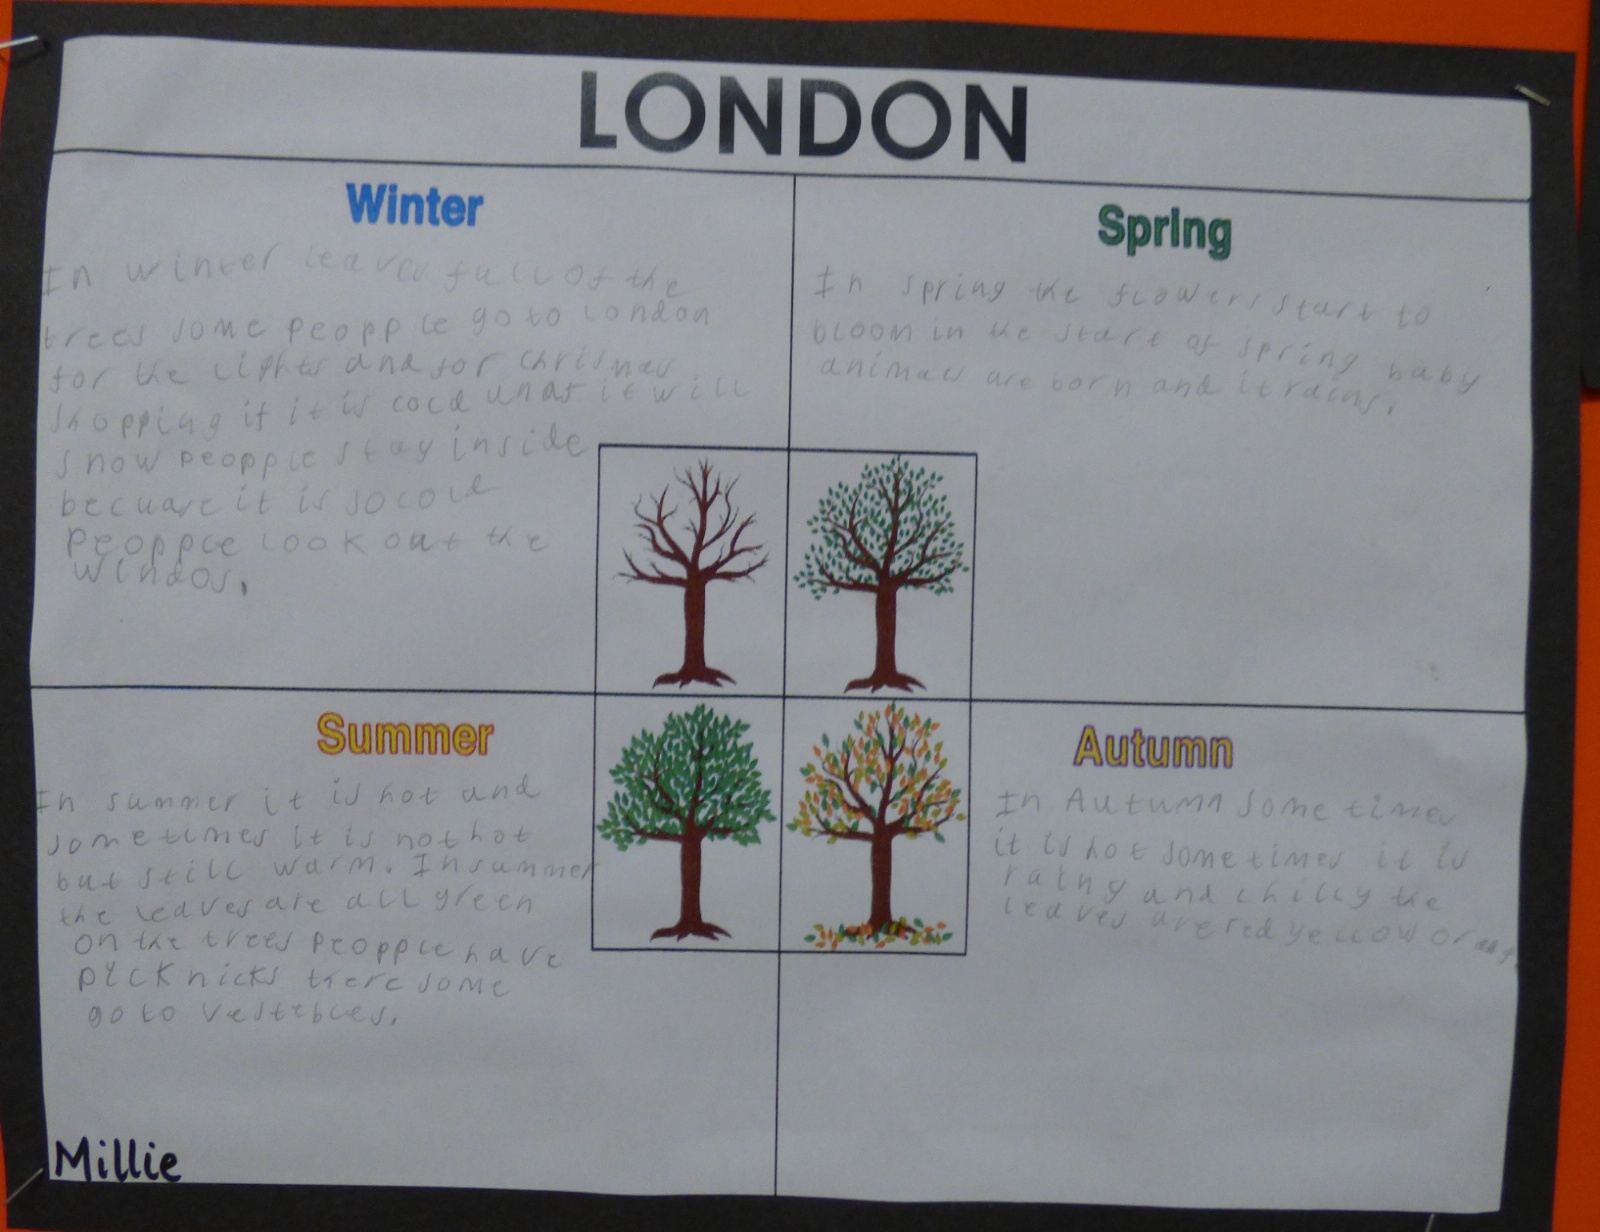 LONDON
Winter
In winter leaves fall of the
trees some peopple go to London
for the lights and for chrismas
shopping if it is cold and it will
snow peopple stay inside
becuase it is so cold
peopple look out the
windos.
Spring
In spring the flowers start to
bloom in the start of spring baby
animals are born and it rains.
Summer
In summer it is hot and
sometimes it is not hot
but still warm. In summer
the leaves are all green
on the trees peopple have
picknicks there some
go to vestebles.
Autumn
In Autumn some times
it is hot sometimes it is
rainy and chilly the
leaves are red yellow
Millie